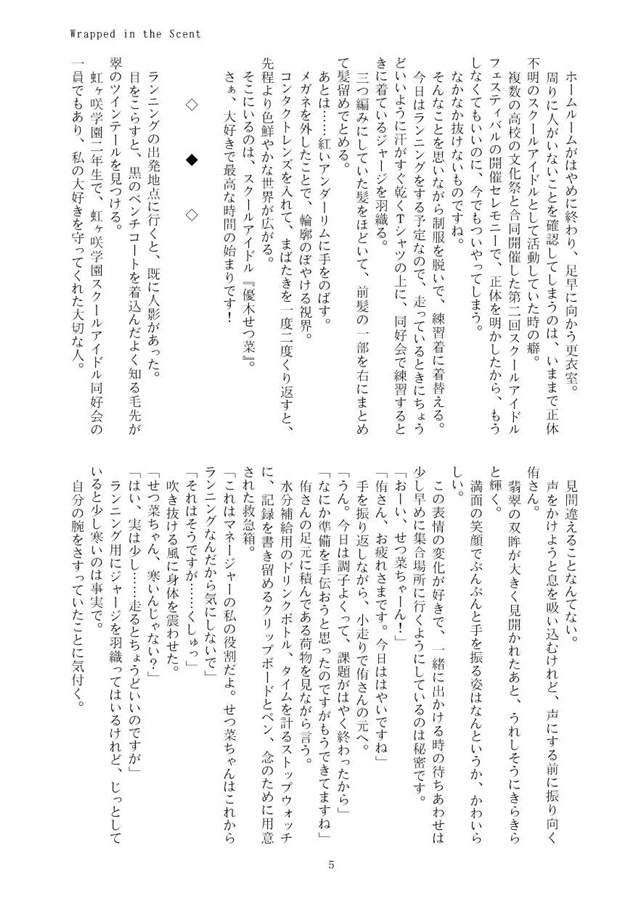 Wrapped in the Scent
ホームルームがはやめに終わり、足早に向かう更衣室。
周りに人がいないことを確認してしまうのは、いままで正体
不明のスクールアイドルとして活動していた時の癖。
複数の高校の文化祭と合同開催した第二回スクールアイドル
フェスティバルの開催セレモニーで、正体を明かしたから、もう
しなくてもいいのに、今でもついやってしまう。
なかなか抜けないものですね。
そんなことを思いながら制服を脱いで、練習着に着替える。
今日はランニングをする予定なので、走っているときにちょう
どいいように汗がすぐ乾くTシャツの上に、同好会で練習すると
きに着ているジャージを羽織る。
三つ編みにしていた髪をほどいて、前髪の一部を右にまとめ
て髪留めでとめる。
あとは……紅いアンダーリムに手をのばす。
メガネを外したことで、輪郭のぼやける視界。
コンタクトレンズを入れて、まばたきを一度二度くり返すと、
先程より色鮮やかな世界が広がる。
そこにいるのは、スクールアイドル『優木せつ菜』。
さぁ、大好きで最高な時間の始まりです！
◇　◆　◇
ランニングの出発地点に行くと、既に人影があった。
目をこらすと、黒のベンチコートを着込んだよく知る毛先が
翠のツインテールを見つける。
虹ヶ咲学園二年生で、虹ヶ咲学園スクールアイドル同好会の
一員でもあり、私の大好きを守ってくれた大切な人。
見間違えることなんてない。
声をかけようと息を吸い込むけれど、声にする前に振り向く
侑さん。
翡翠の双眸が大きく見開かれたあと、うれしそうにきらきら
と輝く。
満面の笑顔でぶんぶんと手を振る姿はなんというか、かわいら
しい。
この表情の変化が好きで、一緒に出かける時の待ちあわせは
少し早めに集合場所に行くようにしているのは秘密です。
「おーい、せつ菜ちゃーん！」
「侑さん、お疲れさまです。今日ははやいですね」
手を振り返しながら、小走りで侑さんの元へ。
「うん。今日は調子よくって、課題がはやく終わったから」
「なにか準備を手伝おうと思ったのですがもうできてますね」
侑さんの足元に積んである荷物を見ながら言う。
水分補給用のドリンクボトル、タイムを計るストップウォッチ
に、記録を書き留めるクリップボードとペン、念のために用意
された救急箱。
「これはマネージャーの私の役割だよ。せつ菜ちゃんはこれから
ランニングなんだから気にしないで」
「それはそうですが……くしゅっ」
吹き抜ける風に身体を震わせた。
「せつ菜ちゃん、寒いんじゃない？」
「はい、実は少し……走るとちょうどいいのですが」
ランニング用にジャージを羽織ってはいるけれど、じっとして
いると少し寒いのは事実で。
自分の腕をさすっていたことに気付く。
5